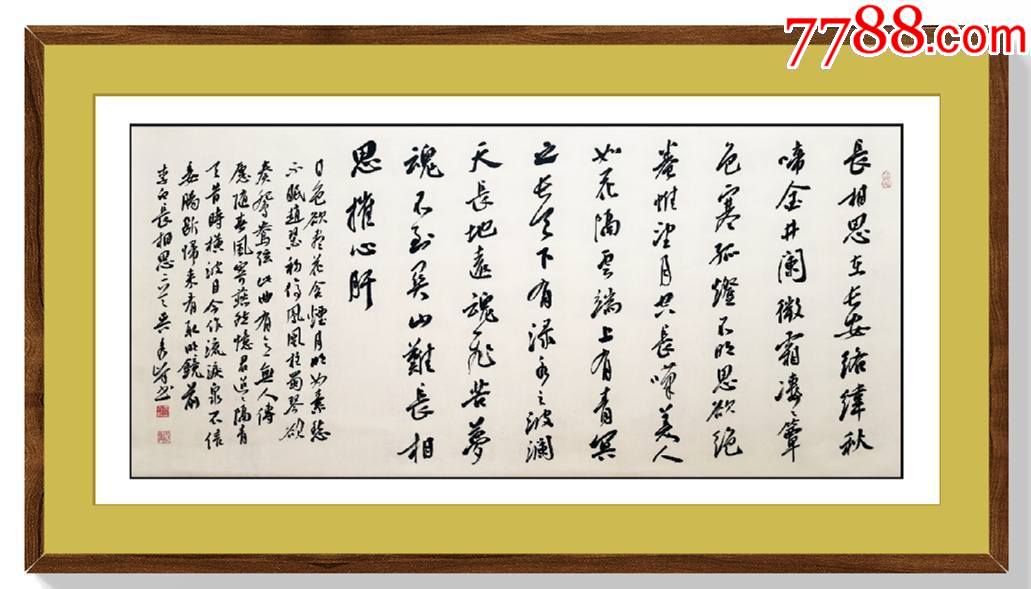 7788.com
長相思在長安絡緯秋
啼金井闌微霜凄〻簟
色寒孤燈不明思欲絕
卷帷望月空長嘆美人
如花隔雲端上有青冥
之長天下有淥水之波瀾
天長地遠魂飛苦夢
魂不到關山難長相
思摧心肝
日色欲盡花含煙月明如素愁
不眠趙瑟初停鳳凰柱蜀琴欲
奏鴛鴦弦此曲有意無人傳
願隨春風寄燕然憶君迢〻隔青
天昔時橫波目今作流淚泉不信
妾腸斷歸來看取明鏡前
李白長相思二首